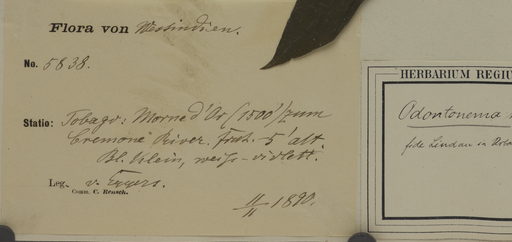 Flora von Westindien.
No. 5838.
Statio: Tobago: Morne d'Or (1500') zum
Cremone River. Frut. 5' alt
Bl. klein, weiss-violett.
Leg. v. Eggers.
Comm. C. Reusch.
11/11 1890.
HERBARIUM REGIU
Odontonema
fide Lindau in